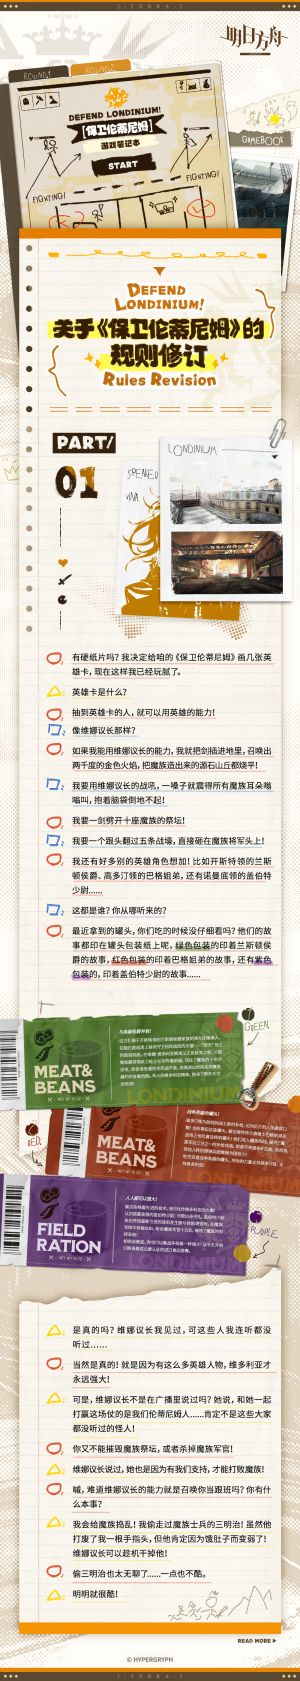 [:TERRA:]
明日方舟
ROUND1
ROUND2
DEFEND LONDINIUM!
[保卫伦蒂尼姆]
游戏笔记本
START
FIGHTING!
FIGHTING!
GAMEBOOK
DEFEND
LONDINIUM!
关于《保卫伦蒂尼姆》的
规则修订
Rules Revision
PART/
01
LONDINIUM
有硬纸片吗?我决定给咱的《保卫伦蒂尼姆》画几张英
雄卡,现在这样我已经玩腻了。
英雄卡是什么?
抽到英雄卡的人,就可以用英雄的能力!
像维娜议长那样?
如果我能用维娜议长的能力,我就把剑插进地里,召唤出
两千度的金色火粒,把魔族造出来的源石山丘都烧平!
我要用维娜议长的战吼,一嗓子就震得所有魔族耳朵嗡
嗡叫,抱着脑袋倒地不起!
我要一剑劈开十座魔族的祭坛!
我要一个跟头翻过五条战壕,直接砸在魔族将军头上!
我还有好多别的英雄角色想加!比如开斯特领的兰斯
顿侯爵、高多汀领的巴格姐弟,还有诺曼底领的盖伯特
少尉……
这都是谁?你从哪听来的?
最近拿到的罐头,你们吃的时候没仔细看吗?他们的故
事都印在罐头包装纸上呢,绿色包装的印着兰斯顿侯
爵的故事,红色包装的印着巴格姐弟的故事,还有紫色
包装的,印着盖伯特少尉的故事……
GREEN.
MEAT&
BEANS
LONDINIUM
RED.
MEAT&
BEANS
FIELD
RATION
PURPLE.
是真的吗?维娜议长我见过,可这些人我连听都没
听过……
当然是真的!就是因为有这么多英雄人物,维多利亚才
永远强大!
可是,维娜议长不是在广播里说过吗?她说,和她一起
打赢这场仗的是我们伦蒂尼姆人……肯定不是这些大家
都没听过的怪人!
你又不能摧毁魔族祭坛,或者杀掉魔族军官!
维娜议长说过,她也是因为有我们支持,才能打败魔族!
喊,难道维娜议长的能力就是召唤你当跟班吗?你有什
么本事?
我会给魔族捣乱!我偷走过魔族士兵的三明治!虽然他
打废了我一根手指头,但他肯定因为饿肚子而变弱了!
维娜议长可以趁机干掉他!
偷三明治也太无聊了……一点也不酷。
明明就很酷!
READ MORE
© HYPERGRYPH
[:TERRA:]